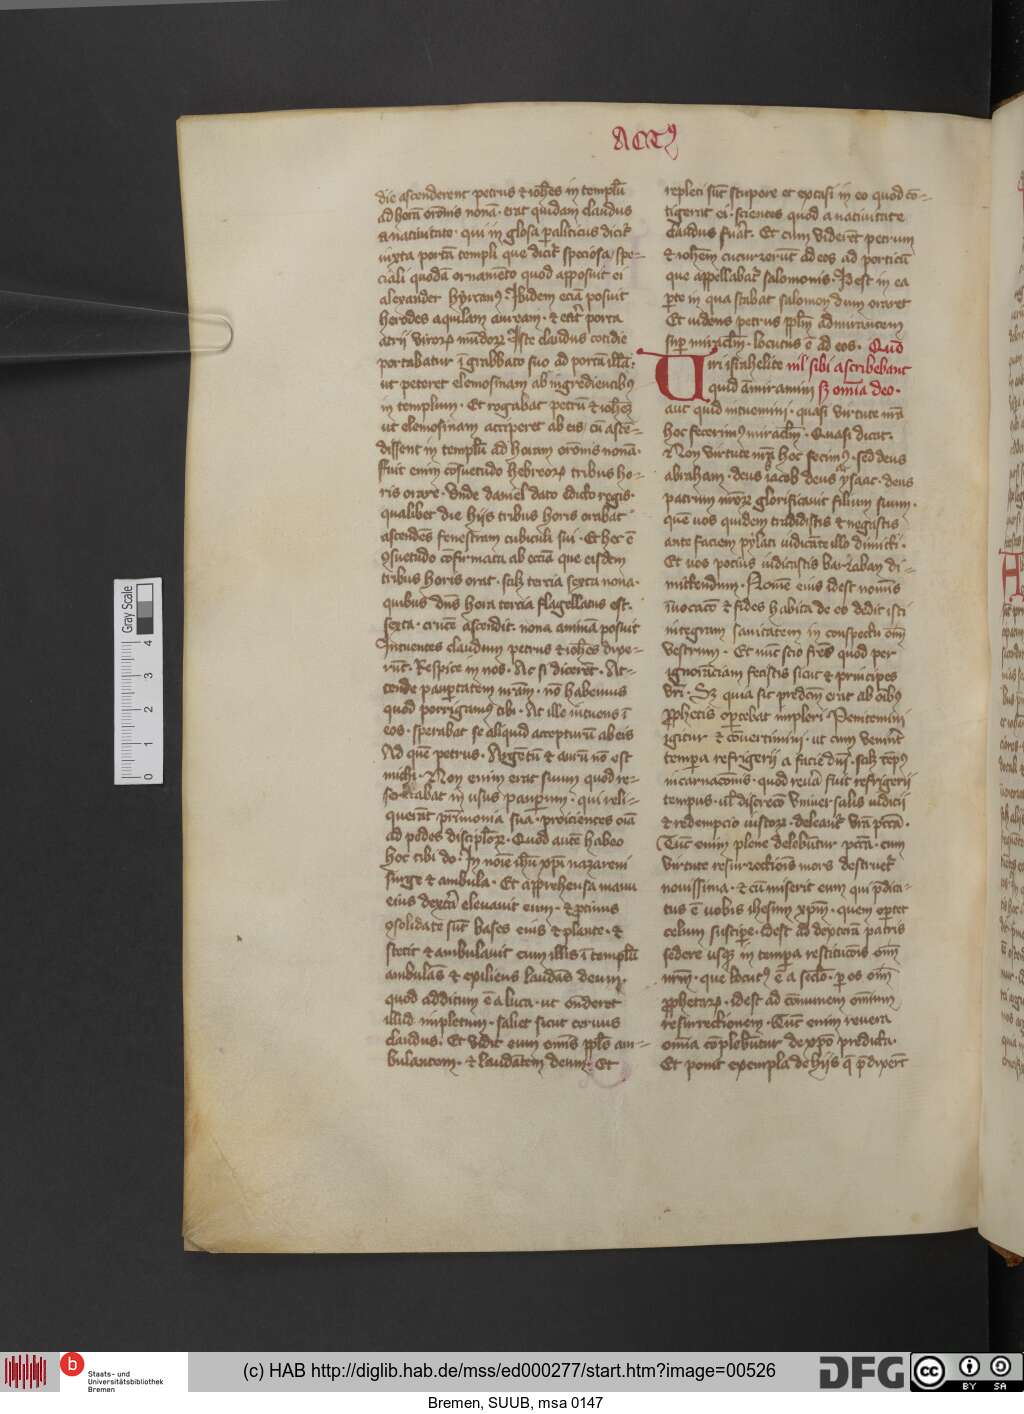 Actꝰ
die ascenderent petrus ⁊ ioh̄es in templū
ad horā or̄onis nonā · erat quidam claudus
a natiuitate · qui in glosa ꝑaliticus dicit᷑
iuxta portā templi que dicit᷑ speciosa / spe-
ciali quodā ornamēto quod apposuit ei
alexander hyrcanꝰ · Ibidem eciā posuit
herodes aquilam auream · ⁊ erat porta
atrij viroꝝ mūdoꝝ Iste claudus cotidie
portabatur ī grabbato suo ad portā illā ·
ut peteret elemosinam ab ingredientibꝰ
in templum · Et rogabat petrū ⁊ ioh̄eꝫ
ut elemosinam acciperet ab eis / cū ascē-
dissent in templū ad horam or̄onis nonā ·
Fuit enim cōsuetudo hebreoꝝ tribus ho-
ris orare · vnde daniel dato edicto regis ·
qualibet die hijs tribus horis orabat
ascendēs fenestram cubiculi sui · Et hec ē
ꝯsuetudo cōfirmata ab ecc̄ia que eisdem
tribus horis orat · scilꝫ tercia sexta nona ·
quibus dn̄s hora tercia flagellatus est ·
sexta · crucē ascendit · nona animā posuit
Intuentes claudum petrus ⁊ ioh̄es dixe-
rūt · Respice in nos · Ac si dicerēt · At-
tende paupertatem nr̄am · nō habemus
quod porrigamꝰ tibi · At ille intuens ī
eos · sperabat se aliquid accepturū ab eis
Ad quē petrus · Argētū ⁊ aurū nō est
michi · Non enim erat suum quod re-
seruabat in usus pauꝑum · qui reli-
querāt pr̄imonia sua · proicientes oīa
ad pedes discipl̄oꝝ · Quod autē habeo
hoc tibi do · In noīe ih̄u xp̄i nazareni
surge ⁊ ambula · Et apprehensa manu
eius dextra eleuauit eum · ⁊ ꝓtinus
ꝯsolidate sūt bases eius ⁊ plante · ⁊
stetit ⁊ ambulauit cum illis ī templū
ambulās ⁊ exiliens laudās deum ·
quod additum ē a luca · ut on̄deret
illud impletum · saliet sicut ceruus
claudus · Et vidit eum omīs ppl̄s am-
bulantem · ⁊ laudātem deum · Et
repleti sūt stupore et extasi in eo quod cō-
tigerat ei · scientes quod a natiuitate
claudus fuāt · Et cum viderēt petrum
⁊ ioh̄em cucurrerūt ad eos ad porticū
que appellabat᷑ salomonis · Id est in ea
ꝑte in qua stabat salomon dum oraret
Et videns petrus ppl̄m admirantem
suꝑ miraclm̄ · locutus ē ad eos · Quō
Uiri israhelite nil' sibi ascribebant
quid āmiramini sꝫ omīa deo ·
aut quid intuemini · quasi virtute nr̄a
hoc fecerimꝰ miraclm̄ · Quasi dicat ·
Non virtute nr̄a hoc fecimꝰ · sed deus
abraham · deus iacob deus ysaac · deus
patrum nr̄oꝝ glorificauit filium suum ·
quē uos quidem tradidistis ⁊ negastis
ante faciem pylati iudicāte illo dimitti ·
Et uos pocius iudicastis barraban di-
mittendum · Nomē eius idest nomīs
īuocacō ⁊ fides habita de eo dedit isti
integram sanitatem in conspectu oīm
vestrum · Et nūc scio fr̄es quod per
ignoranciam fecistis sicut ⁊ principes
vr̄i · Sꝫ quia sic predc̄m erat ab oībꝰ
prophetis oꝑtebat impleri Penitemini
igitur ⁊ cōuertimini · ut cum veniūt
temꝑa refrigerij a facie dn̄i · scilꝫ tēpꝰ
incarnac̄onis · quod reuā fuit refrigerij
tempus · ul' discrec̄o vniuersalis iudicij
⁊ redempcio iustoꝝ · deleant᷑ vr̄a pcc̄ā ·
Tūc enim plene delebūtur pcc̄a · cum
virtute resurrectionis mors destruet᷑
nouissima · ⁊ cū miserit eum qui p̄dica-
tus ē uobis ihesum xp̄m · quem oꝑtet
celum susciꝑe · Idest ad dexterā patris
sedere usqꝫ in temꝑa restituc̄ois oīm
nr̄m · que locutꝰ ē a sc̄lo · ꝑ os oīm
prophetaꝝ · idest ad cōmunem omīum
resurrectionem · Tūc enim reuera
omīa cōplebūtur de xp̄o predicta ·
Et ponit exempla de hijs q̄ p̄dixerūt
Gray Scale
0 1 2 3 4
b
Staats- und
Universitätsbibliothek
Bremen
(c) HAB http://diglib.hab.de/mss/ed000277/start.htm?image=00526
DFG
cc BY SA
Bremen, SUUB, msa 0147